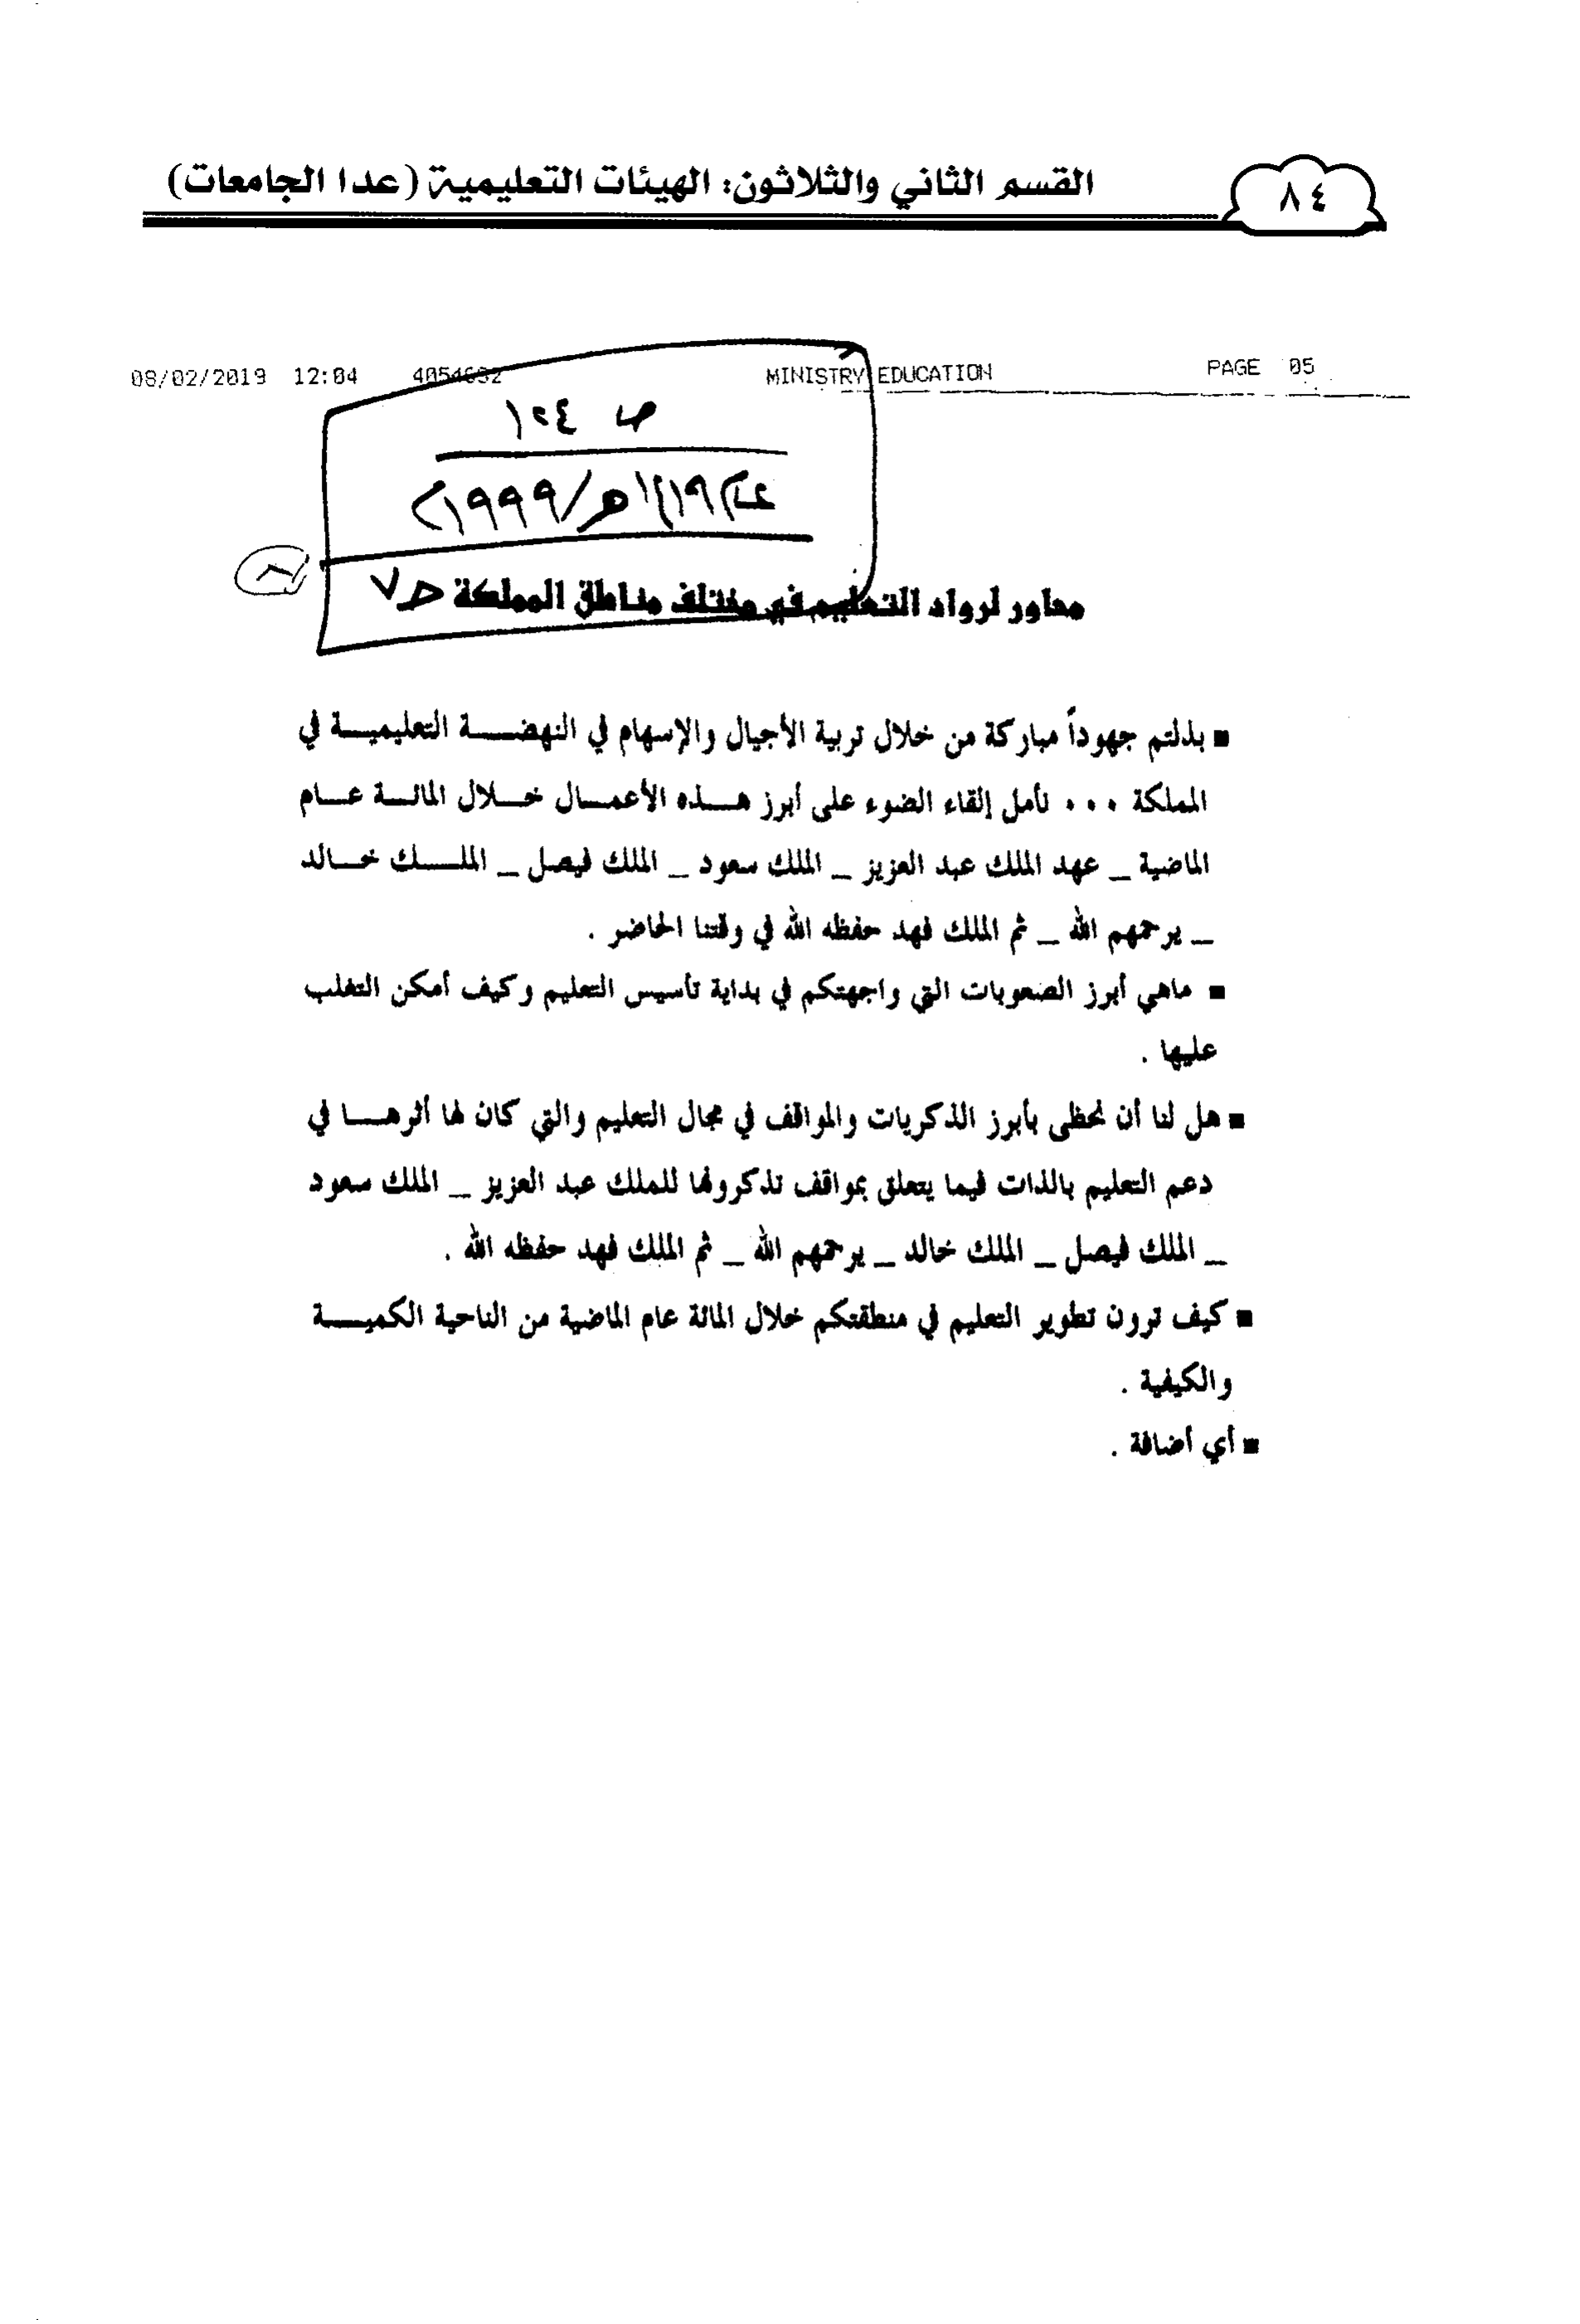 ٨٤
القسم الثاني والثلاثون: الهيئات التعليمية (عدا الجامعات)
08/02/2019 12:04 4054632 MINISTRY EDUCATION PAGE 05
ص ١٢٤
عام ١٤١٩هـ/١٩٩٩م
محاور لرواد التعليم في مختلف مناطق المملكة
■ بذلتم جهوداً مباركة من خلال تربية الأجيال والإسهام في النهضة التعليمية في
المملكة ... نأمل إلقاء الضوء على أبرز هذه الأعمال خلال المائة عام
الماضية _ عهد الملك عبد العزيز _ الملك سعود _ الملك فيصل _ الملك خالد
_ يرحمهم الله _ ثم الملك فهد حفظه الله في وقتنا الحاضر .
■ ماهي أبرز الصعوبات التي واجهتكم في بداية تأسيس التعليم وكيف أمكن التغلب
عليها .
■ هل لنا أن نحظى بأبرز الذكريات والمواقف في مجال التعليم والتي كان لها أثرها في
دعم التعليم بالذات فيما يتعلق بمواقف تذكرونها للملك عبد العزيز _ الملك سعود
_ الملك فيصل _ الملك خالد _ يرحمهم الله _ ثم الملك فهد حفظه الله .
■ كيف ترون تطوير التعليم في منطقتكم خلال المائة عام الماضية من الناحية الكمية
والكيفية .
■ أي أضافة .